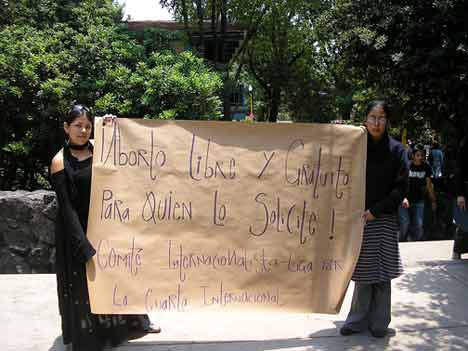 ¡Aborto Libre y Gratuito
Para Quien lo Solicite!
Comité Internacionalista-Liga por
La Cuarta Internacional